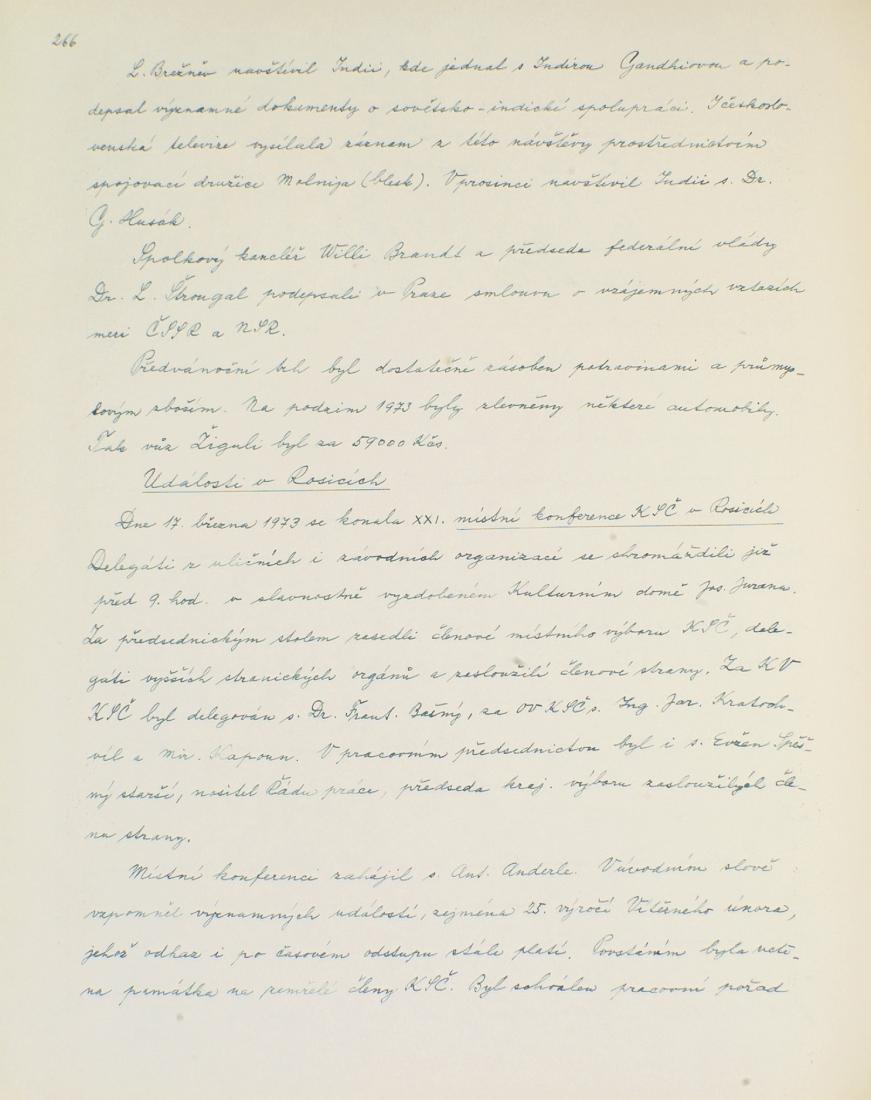 266
L. Brežněv navštívil Indii, kde jednal s Indirou Gandhiovou a po-
depsal významné dokumenty o sovětsko-indické spolupráci. I českoslo-
venská televize vysílala záznam z této návštěvy prostřednictvím
spojovací družice Molnija (blesk). V prosinci navštívil Indii s. Dr.
G. Husák.
Spolkový kancléř Willi Brandt a předseda federální vlády
Dr. L. Štrougal podepsali v Praze smlouvu o vzájemných vztazích
mezi ČSSR a NSR.
Předvánoční trh byl dostatečně zásoben potravinami a průmys-
lovým zbožím. Na podzim 1973 byly zlevněny některé automobily.
Tak vůz Žiguli byl za 59000 Kčs.
Události v Rosicích
Dne 17. března 1973 se konala XXI. místní konference KSČ v Rosicích
Delegáti z uličních i závodních organizací se shromáždili již
před 9. hod. v slavnostně vyzdobeném Kulturním domě Jos. Jurana.
Za předsednickým stolem zasedli členové místního výboru KSČ, dele-
gáti vyšších stranických orgánů a zasloužilí členové strany. Za KV
KSČ byl delegován s. Dr. Frant. Bašný, za OV KSČ s. Ing. Jar. Kratoch-
víl a Mir. Kapoun. V pracovním předsednictvu byl i s. Evžen Spěš-
ný starší, nositel Řádu práce, předseda kraj. výboru zasloužilých čle-
nu strany.
Místní konferenci zahájil s. Ant. Anderle. V úvodním slově
vzpomněl významných událostí, zejména 25. výročí Vítězného února,
jehož odkaz i po časovém odstupu stále platí. Povstáním byla uctě-
na památka na zemřelé členy KSČ. Byl schválen pracovní pořad